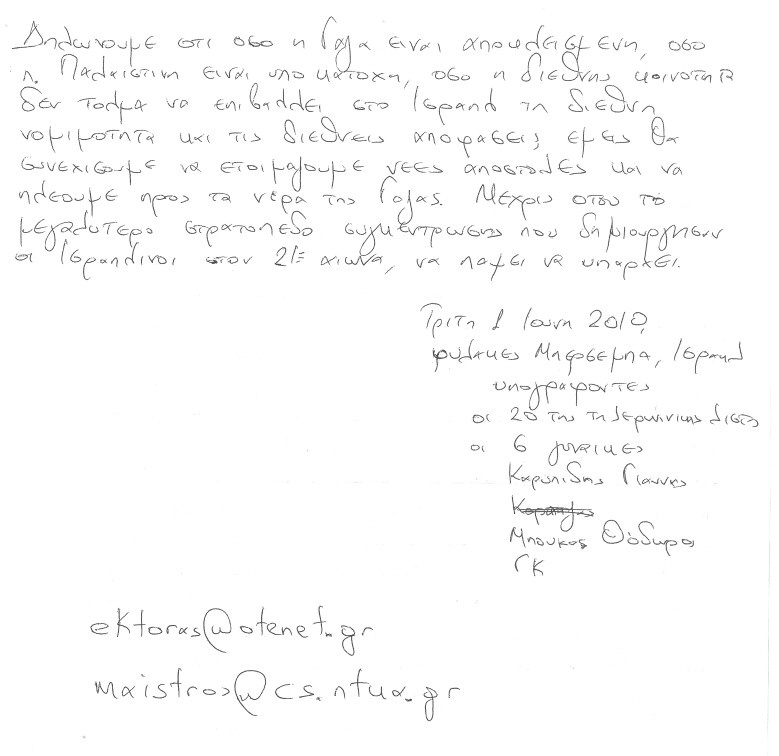 Δηλωνουμε οτι οσο η Γαζα ειναι αποκλεισμενη, οσο
η Παλαιστινη ειναι υπο κατοχη, οσο η διεθνης κοινοτητα
δεν τολμα να επιβαλλει στο Ισραηλ τη διεθνη
νομιμοτητα και τις διεθνεις αποφασεις, εμεις θα
συνεχισουμε να ετοιμαζουμε νεες αποστολες και να
πλεουμε προς τα νερα της Γαζας. Μεχρις οτου το
μεγαλυτερο στρατοπεδο συγκεντρωσης που δημιουργησαν
οι Ισραηλινοι στον 21ο αιωνα, να παψει να υπαρχει.
Τριτη 1 Ιουνη 2010,
φυλακες Μπερσεμπα, Ισραηλ
υπογραφοντες
οι 20 της λιστας
οι 6 γυναικες
Καρυπιδης Γιαννης
Μπουκας Θόδωρος
ΓΚ
ektoras@otenet.gr
maistros@cs.ntua.gr